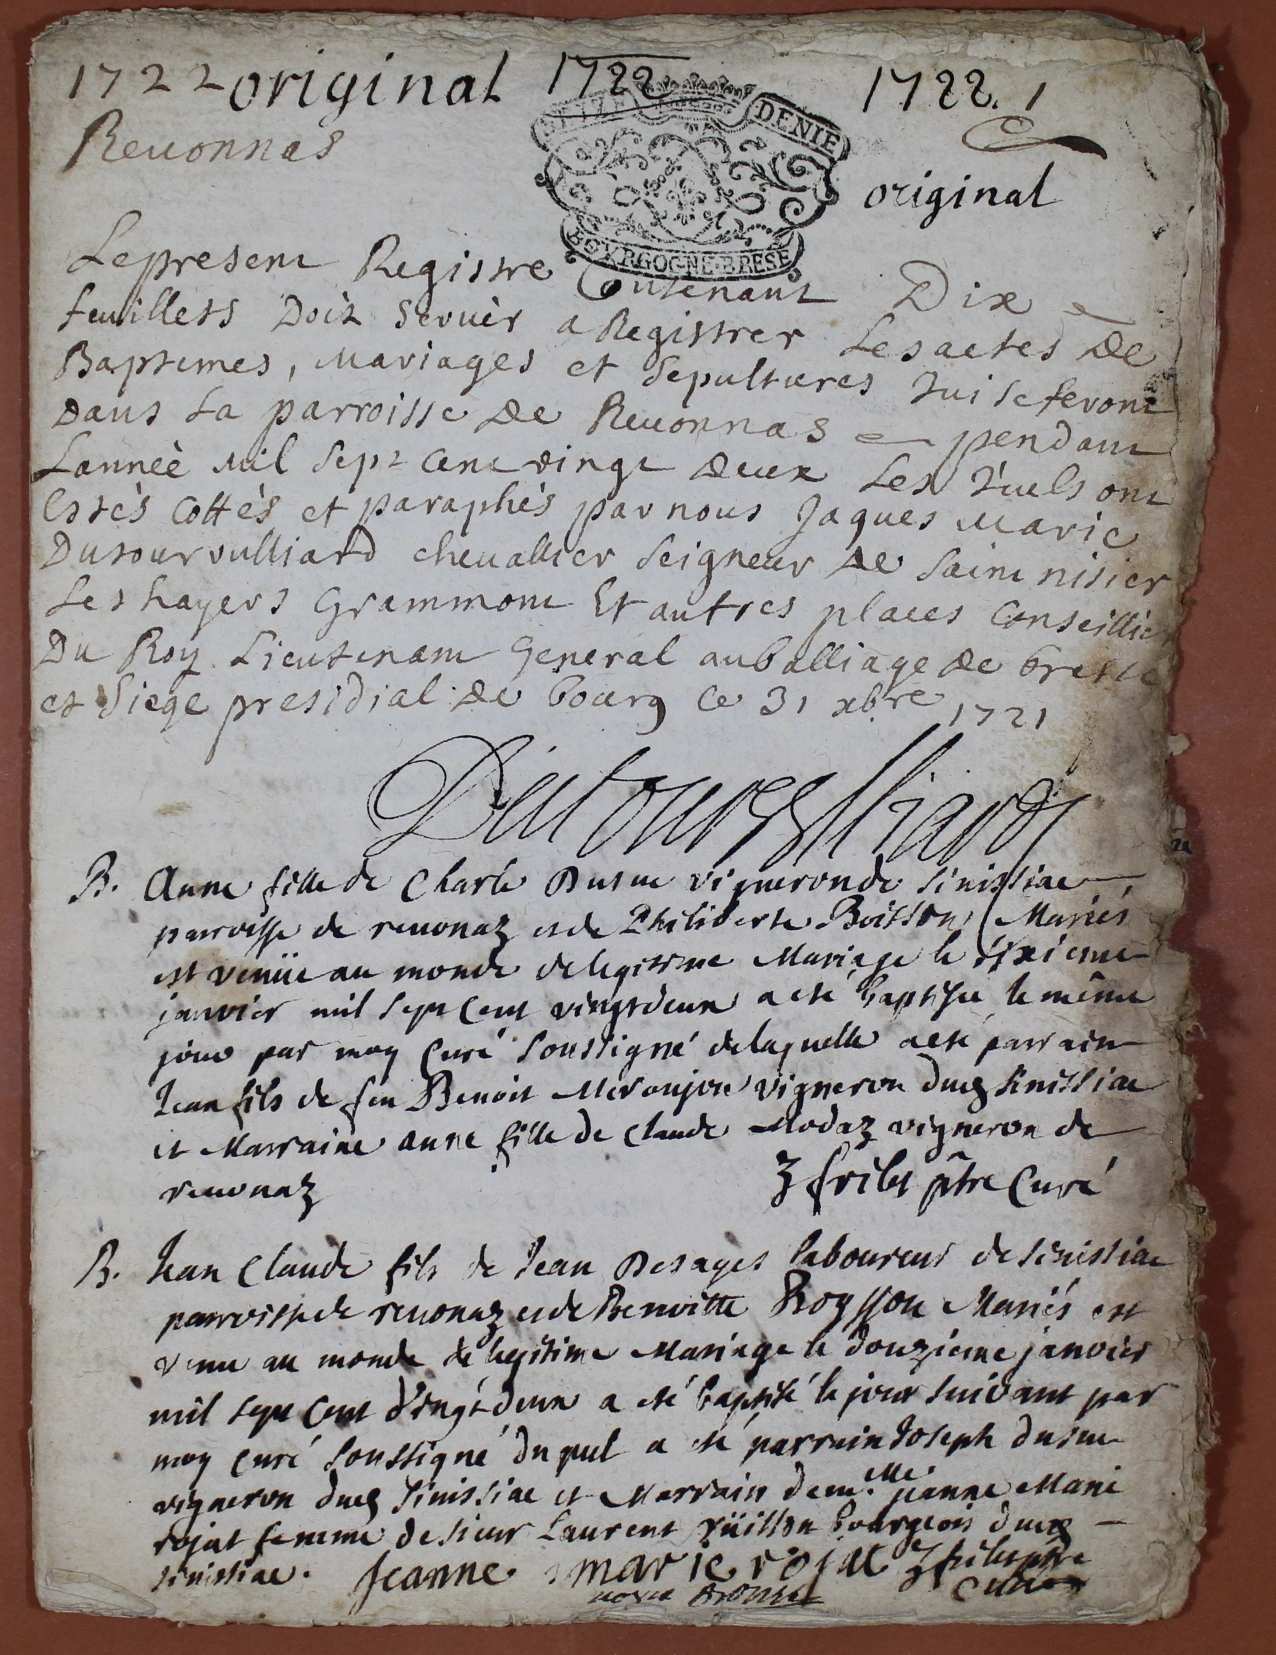 1722 original 1722 1722. 1
Reuonnas
SEIZE DENIE
BOVRGOGNE·BRESE
original
Le present Registre Contenant Dix
feuillets Doit seruir a Registrer Les actes De
Baptemes, Mariages et sepultures qui se feront
Dans La parroisse De Reuonnas pendant
Lanneé Mil sept cent vingt deux Les quels ont
Estés cottés et paraphés par nous Jaques Marie
Dutour vulliard cheuallier seigneur de saint nisier
Les hayers Grammont Et autres places Conseillier
Du Roy Lieutenant General au balliage de bresse
et siege presidial de bourg ce 31 xbre 1721
Dutourvulliard
B. Anne fille de Charle vigneron de sinissiac
parroisse de reuonaz et de Philiberte Boisson Mariés
est venüe au monde de legitime Mariage le sixieme
janvier mil sept Cent vingt deux a eté baptisée le même
jour par moy Curé soussigné de laquelle a eté parrain
Jean fils de feu Benoit vigneron dudt sinissiac
et Marraine anne fille de claude Modaz vigneron de
reuonaz ptre Curé
B. Jean Claude fils de Jean Desages laboureur de sinissiac
parroisse de reuonaz et de Benoitte Boysson Mariés est
venu au monde de legitime Mariage le douzieme janvier
mil sept Cent Vingt deux a eté baptisé le jour suivant par
moy Curé soussigné duquel a eté parrain Joseph
vigneron dudt sinissiac et Marraine dem.elle jeanne Marie
rojat femme de sieur Laurent bourgeois dudt
sinissiac. Jeanne marie rojat ptre
Curé